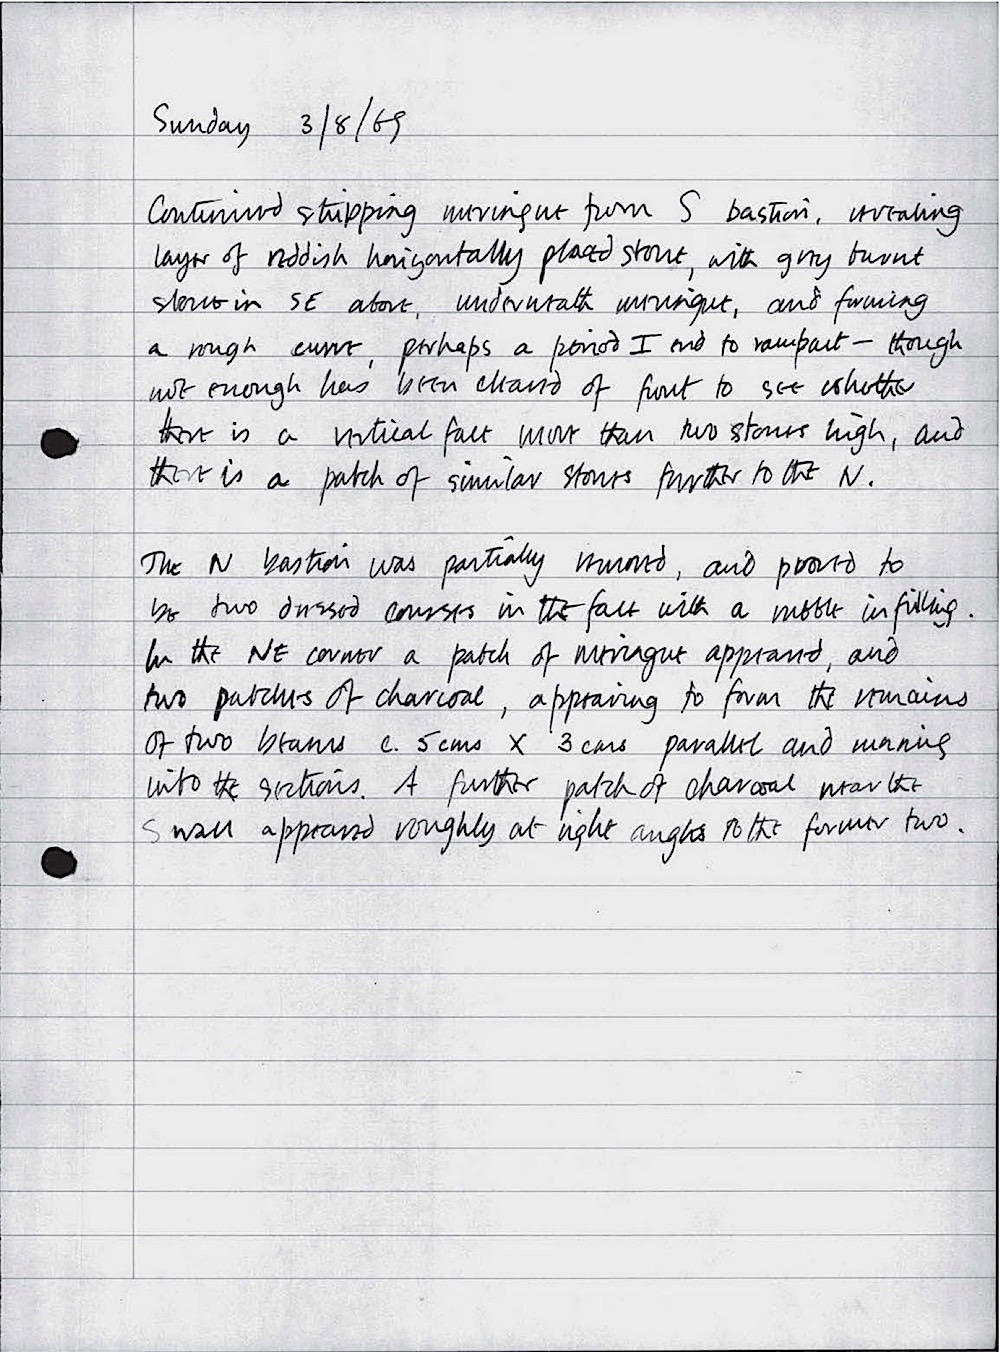 Sunday 3/8/69
Continued stripping meringue from S bastion, revealing
layer of reddish horizontally placed stone, with grey burnt
stone in SE above, underneath meringue, and forming
a rough curve, perhaps a period I end to rampart – though
not enough has been cleared of front to see whether
there is a vertical face more than two stones high, and
there is a patch of similar stones further to the N.
The N bastion was partially removed, and proved to
be two dressed courses in the face with a rubble infilling.
In the NE corner a patch of meringue appeared, and
two patches of charcoal, appearing to form the remains
of two beams c. 5 cms x 3 cms parallel and running
into the sections. A further patch of charcoal near the
S wall appeared roughly at right angles to the former two.